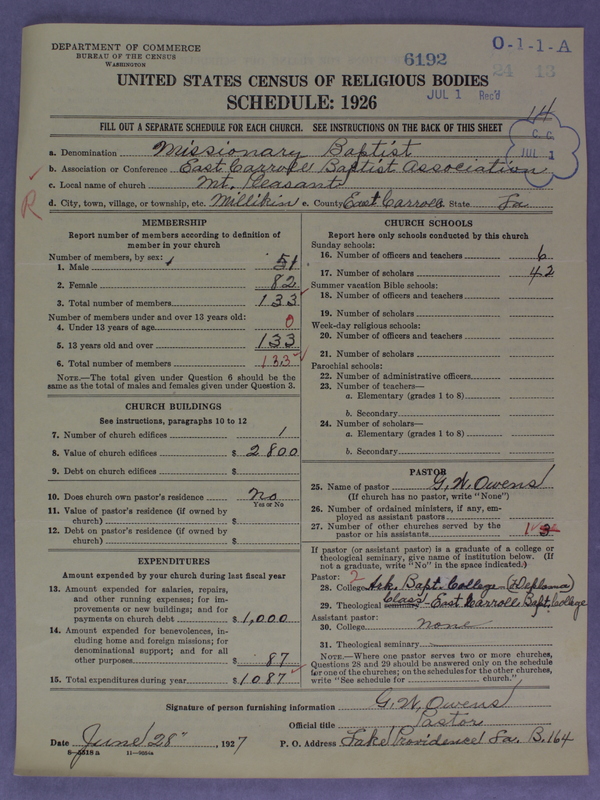 DEPARTMENT OF COMMERCE
BUREAU OF THE CENSUS
WASHINGTON
6192
0-1-1-A
24 13
UNITED STATES CENSUS OF RELIGIOUS BODIES
SCHEDULE: 1926
JUL 1 Rec'd
14
FILL OUT A SEPARATE SCHEDULE FOR EACH CHURCH. SEE INSTRUCTIONS ON THE BACK OF THIS SHEET
C. C.
JUL 1
a. Denomination Missionary Baptist
b. Association or Conference East Carroll Baptist Association
c. Local name of church Mt. Pleasant
d. City, town, village, or township, etc. Millikin e. County East Carroll State La
R
MEMBERSHIP
Report number of members according to definition of member in your church
Number of members, by sex:
1. Male 51
2. Female 82
3. Total number of members 133
Number of members under and over 13 years old:
4. Under 13 years of age 0
5. 13 years old and over 133
6. Total number of members 133
NOTE.—The total given under Question 6 should be the same as the total of males and females given under Question 3.
CHURCH BUILDINGS
See instructions, paragraphs 10 to 12
7. Number of church edifices 1
8. Value of church edifices $ 2800
9. Debt on church edifices $
10. Does church own pastor's residence No
Yes or No
11. Value of pastor's residence (if owned by church) $
12. Debt on pastor's residence (if owned by church) $
EXPENDITURES
Amount expended by your church during last fiscal year
13. Amount expended for salaries, repairs, and other running expenses; for improvements or new buildings; and for payments on church debt $ 1,000
14. Amount expended for benevolences, including home and foreign missions; for denominational support; and for all other purposes $ 87
15. Total expenditures during year $ 1087
CHURCH SCHOOLS
Report here only schools conducted by this church
Sunday schools:
16. Number of officers and teachers 6
17. Number of scholars 42
Summer vacation Bible schools:
18. Number of officers and teachers
19. Number of scholars
Week-day religious schools:
20. Number of officers and teachers
21. Number of scholars
Parochial schools:
22. Number of administrative officers
23. Number of teachers—
a. Elementary (grades 1 to 8)
b. Secondary
24. Number of scholars—
a. Elementary (grades 1 to 8)
b. Secondary
PASTOR
25. Name of pastor G. W. Owens
(If church has no pastor, write "None")
26. Number of ordained ministers, if any, employed as assistant pastors
27. Number of other churches served by the pastor or his assistants 3
If pastor (or assistant pastor) is a graduate of a college or theological seminary, give name of institution below. (If not a graduate, write "No" in the space indicated:)
Pastor: 2
28. College Ark. Bapt. College (Deploma)
29. Theological seminary Class - East Carroll Bapt. College
Assistant pastor:
30. College none
31. Theological seminary
NOTE.—Where one pastor serves two or more churches, Questions 28 and 29 should be answered only on the schedule for one of the churches; on the schedules for the other churches, write "See schedule for church."
Signature of person furnishing information G. W. Owens
Official title Pastor
Date June 28", 1927 P. O. Address Lake Providence La. B. 164